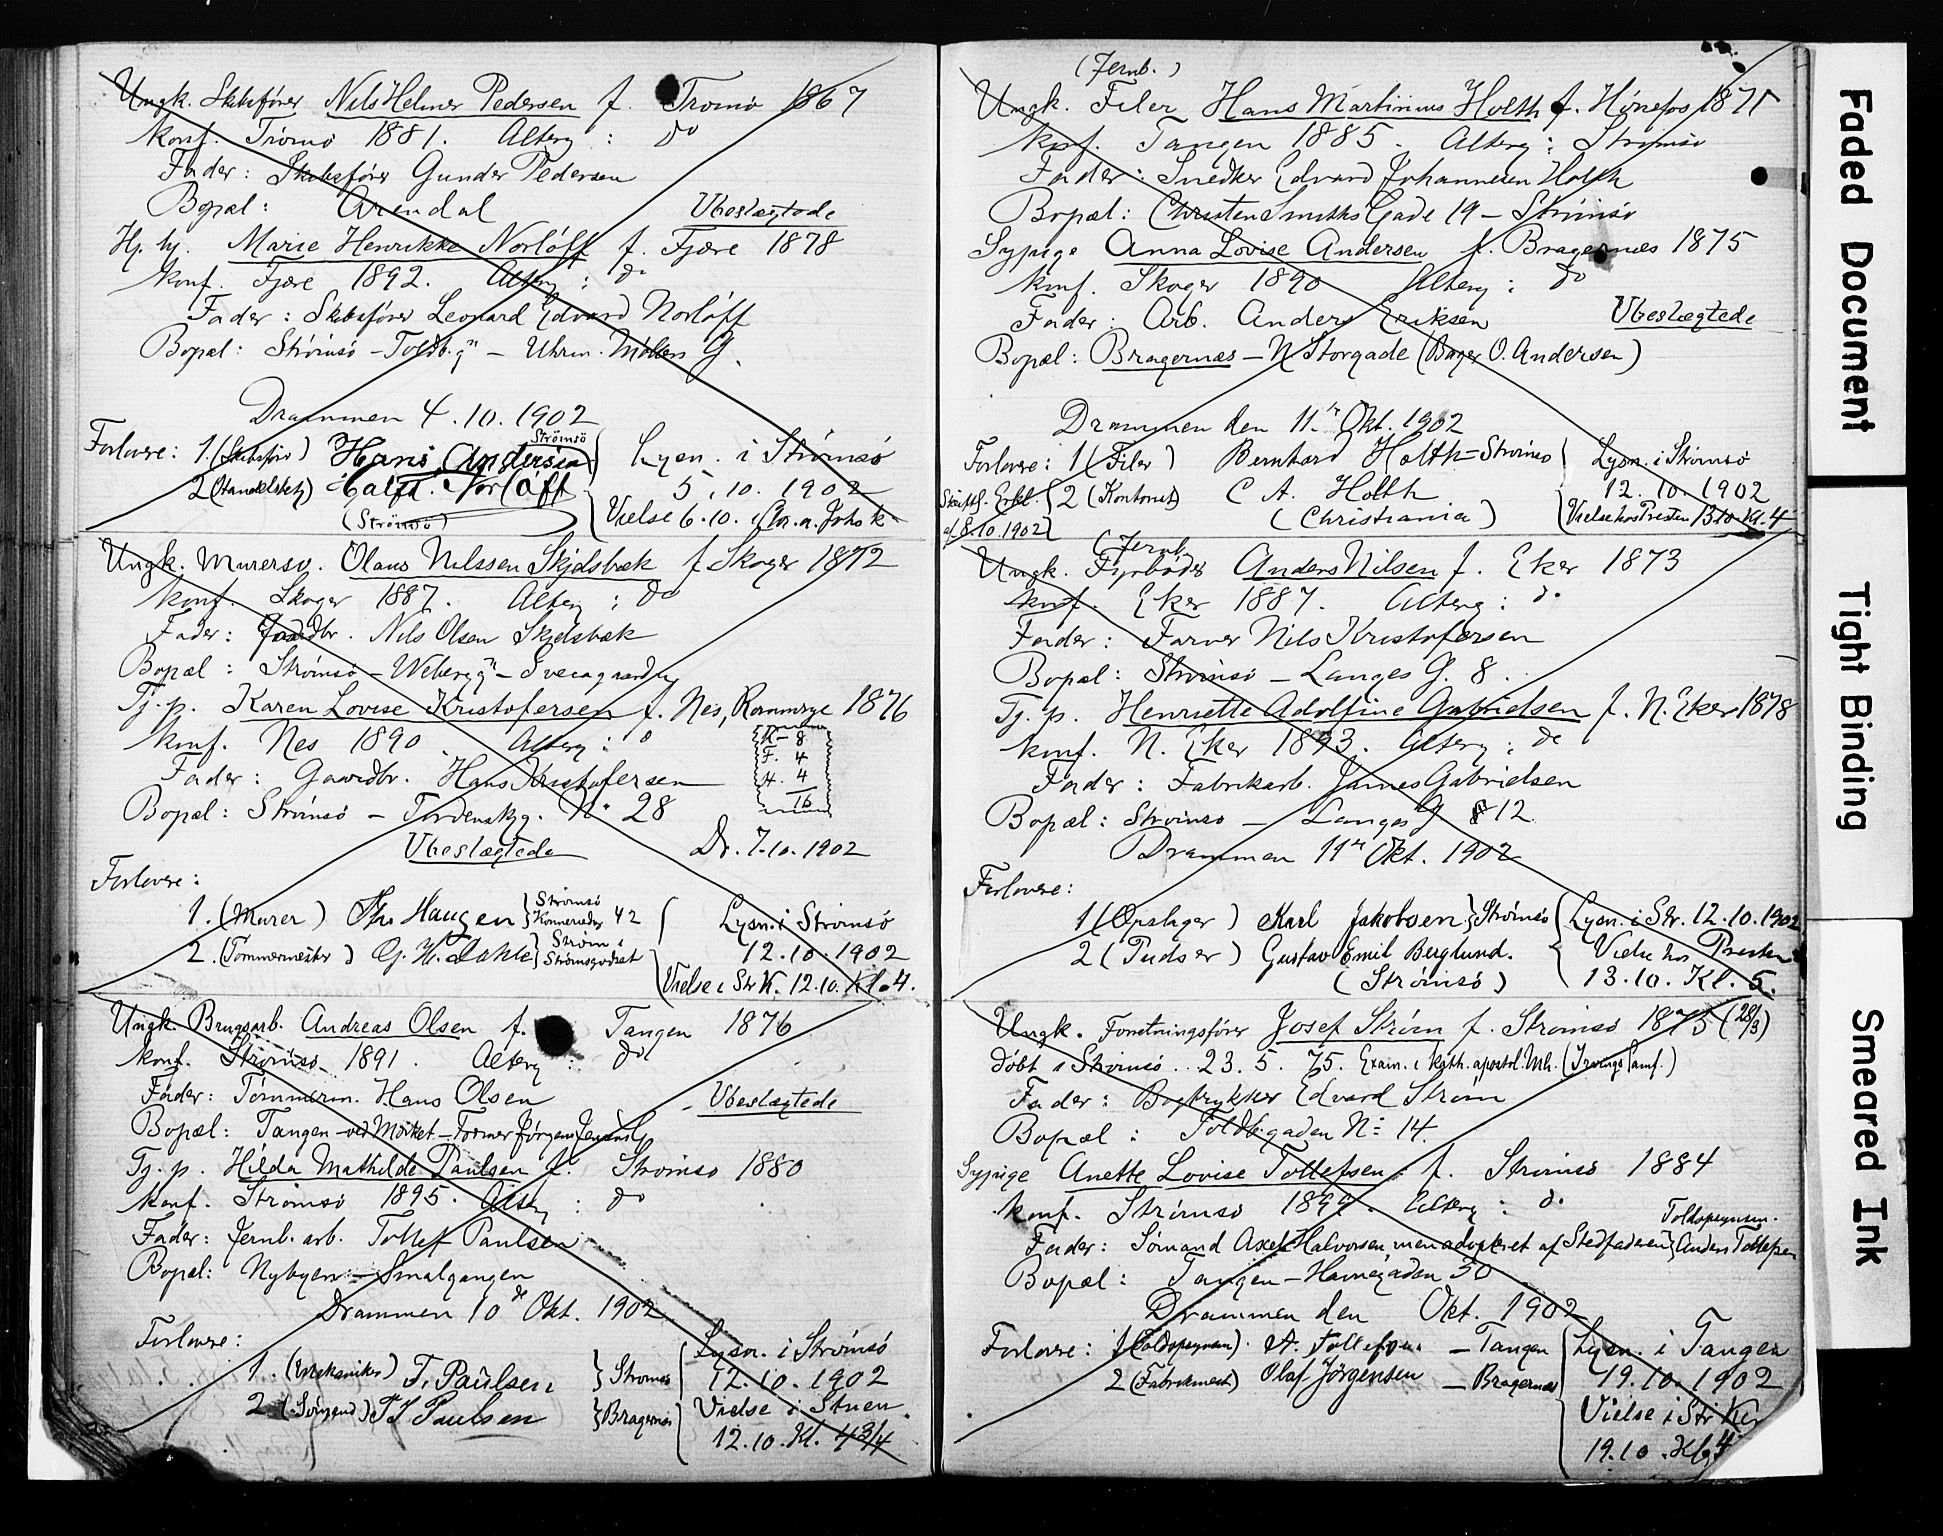 Ungk. Skibsfører Nils Helmer Pedersen f. Tromø 1867
Konf. Trømø 1881. Alterg: do
Fader: Skibsfører Gunder Pedersen
Bopæl: Arendal Ubeslægtede
Hj. hj. Marie Henrikke Norløff f. Fjære 1878
Konf. Fjære 1892. Alterg: do
Fader: Skibsfører Leonard Edvard Norløff
Bopæl: Strømsø - Toldb.gn - Uhrm. Møllers G.
Drammen 4.10.1902
Forlovere: 1. (Skibsfør) Hans Andersen (Strømsø)
2 (Handelsbetj) Halfd. Norløff
(Strømsø)
Lysn. i Strømsø
5.10.1902
Vielse 6.10. i
Ungk. Murersv. Olaus Nilssen Skjelsbæk f Skoger 1872
Konf. Skoger 1887. Alterg: do
Fader: Gaardbr. Nils Olsen Skjelsbæk
Bopæl: Strømsø - Webergn - Sveagaarden
Tj. p. Karen Lovise Kristofersen f. Nes, Rommerge 1876
Konf. Nes 1890. Alterg: o
Fader: Gaardbr. Hans Kristofersen
Bopæl: Strømsø - Tordenskg. No 28
K - 8
F. 4
A. 4
16
Ubeslægtede Dr. 7.10.1902
Forlovere:
1. (Murer) Chr. Haugen Strømsø Konnerudg 42
2. (Tømmermester) G. H. Dahle Strøm i Strømsgodset
Lysn. i Strømsø
12.10.1902
Vielse i Str K. 12.10. Kl. 4.
Ungk. Brugsarb. Andreas Olsen f. Tangen 1876
Konf. Strømsø 1891. Alterg: do
Fader: Tømmerm. Hans Olsen
Ubeslægtede
Bopæl: Tangen - ved Mørket - Former Jørgen
Tj. p. Hilda Mathilde Paulsen f. Strømsø 1880
Konf. Strømsø 1895. Alterg: do
Fader: Jernb. arb. Tollef Paulsen
Bopæl: Nybyen - Smalgangen
Drammen 10de Okt. 1902
Forlovere:
1. (Mekaniker) T. Paulsen Strømsø
2 (Sømand) T J Paulsen Bragernæs
Lysn. i Strømsø
12.10.1902
Vielse i Stuen.
12.10. Kl. 4 3/4
(Jernb.)
Ungk. Filer Hans Martinius Holth f. Hønefos 1871
Konf. Tangen 1885. Alterg: Strømsø
Fader: Snedker Edvard Johannesen Holth
Bopæl: Christen Smiths Gade 19 - Strømsø
Sypige Anna Lovise Andersen f. Bragernæs 1875
Konf. Skoger 1890 Alterg: do
Fader: Arb. Anders Eriksen Ubeslægtede
Bopæl: Bragernæs - N Storgade (Bager O. Andersen)
Drammen den 11te Okt. 1902
Forlovere: 1 (Filer) Bernhard Holth - Strømsø
Skriftl. Erkl. af 8.10.1902
2 (Kontorist) C A. Holth
(Christiania)
Lysn. i Strømsø
12.10.1902
Vielse hos Presten 13.10 Kl. 4
(Jernb.
Ungk. Fyrbøder Anders Nilsen f. Eker 1873
Konf. Eker 1887. Alterg: do
Fader: Farver Nils Kristofersen
Bopæl: Strømsø - Langes G. 8.
Tj. p. Henriette Adolfine Gabrielsen f. N. Eker 1878
Konf. N. Eker 1893. Alterg: do
Fader: Fabrikarb. James Gabrielsen
Bopæl: Strømsø - Langes G 12
Drammen 11te Okt. 1902
Forlovere:
1 (Opslager) Karl Jakobsen Strømsø
2 (Pudser) Gustav Emil Berglund.
(Strømsø)
Lysn. i Str. 12.10.1902
Vielse hos Presten
13.10. Kl. 5.
Ungk. Forretningsfører Josef Strøm f. Strømsø 1875 (28/3)
Døbt i Strømsø .. 23.5.75. Exam. i Kath. apostol. Mh. (Irvings Samf.)
Fader: Bogtrykker Edvard Strøm
Bopæl: Toldbgaden No 14.
Sypige Anette Lovise Tollefsen f. Strømsø 1884
Konf. Strømsø 1899. Alterg: do
Fader: Sømand Axel Halvorsen, men adopteret af Stedfaderen Toldopsynsm. Anders Tollefsen
Bopæl: Tangen - Havnegaden 30
Drammen den Okt. 1902
Forlovere: 1 (Toldopsynsm). A. Tollefsen - Tangen
2 (Fabrikmest) Olaf Jørgensen - Bragernæs
Lysn. i Tangen
19.10.1902
Vielse i Str Ker
19.10. Kl 4
Faded Document
Tight Binding
Smeared Ink